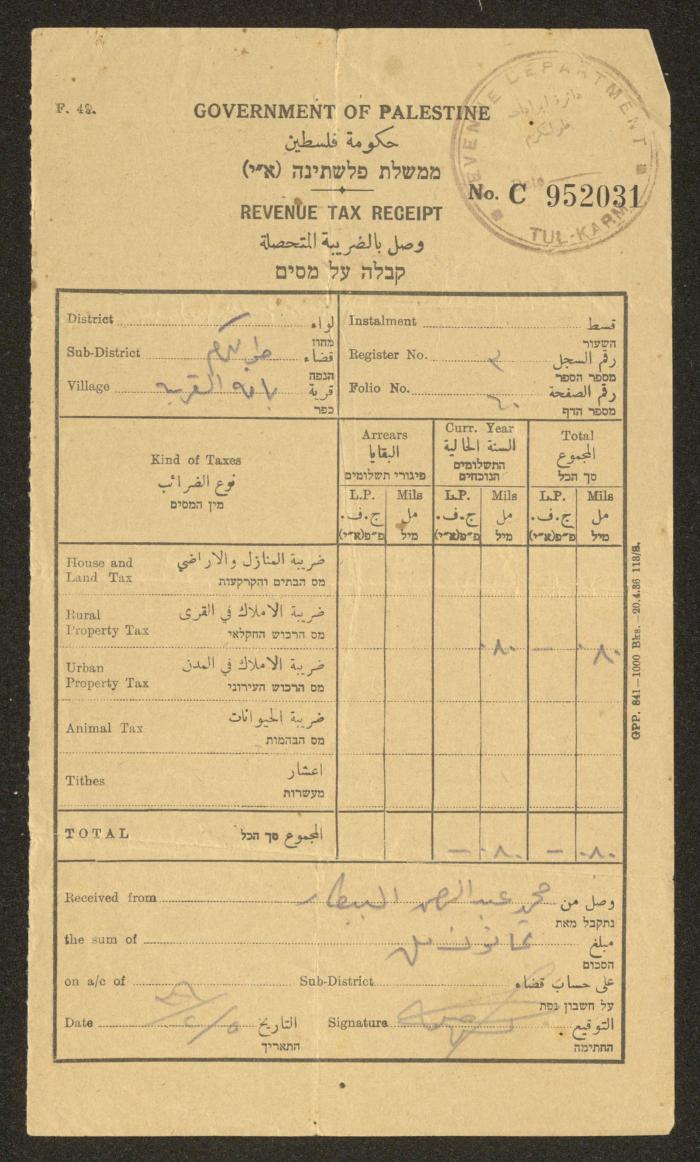 F. 49.
GOVERNMENT OF PALESTINE
حكومة فلسطين
ממשלת פלשתינה (א״י)
REVENUE DEPARTMENT
دائرة ايرادات
طولكرم
Date
TUL-KARM
No. C 952031
REVENUE TAX RECEIPT
وصل بالضريبة المتحصلة
קבלה על מסים
District لواء
מחוז
Sub-District طولكرم قضاء
הנפה
Village باقة الغربية قرية
כפר
Instalment قسط
השעור
Register No. ٣ رقم السجل
מספר הספר
Folio No. ٦٠ رقم الصفحة
מספר הדף
Kind of Taxes
نوع الضرائب
מין המסים
Arrears
البقايا
פיגורי תשלומים
Curr. Year
السنة الحالية
התשלומים
הנוכחים
Total
المجموع
סך הכל
L.P. Mils L.P. Mils L.P. Mils
ج.ف. مل ج.ف. مل ج.ف. مل
פ״פ(א״י) מיל פ״פ(א״י) מיל פ״פ(א״י) מיל
House and
Land Tax
ضريبة المنازل والاراضي
מס הבתים והקרקעות
Rural
Property Tax
ضريبة الاملاك في القرى
מס הרכוש החקלאי
٠٨٠ — ٠٨٠
Urban
Property Tax
ضريبة الاملاك في المدن
מס הרכוש העירוני
Animal Tax
ضريبة الحيوانات
מס הבהמות
Tithes
اعشار
מעשרות
TOTAL סך הכל المجموع
— ٠٨٠ — ٠٨٠
Received from محمد عبد الرحمن البيطار وصل من
נתקבל מאת
the sum of ثمانون مل مبلغ
הסכום
on a/c of Sub-District على حساب قضاء
על חשבון נפת
Date التاريخ
התאריך
Signature التوقيع
החתימה
GPP. 841—1000 Bks.—20.4.36 118/B.